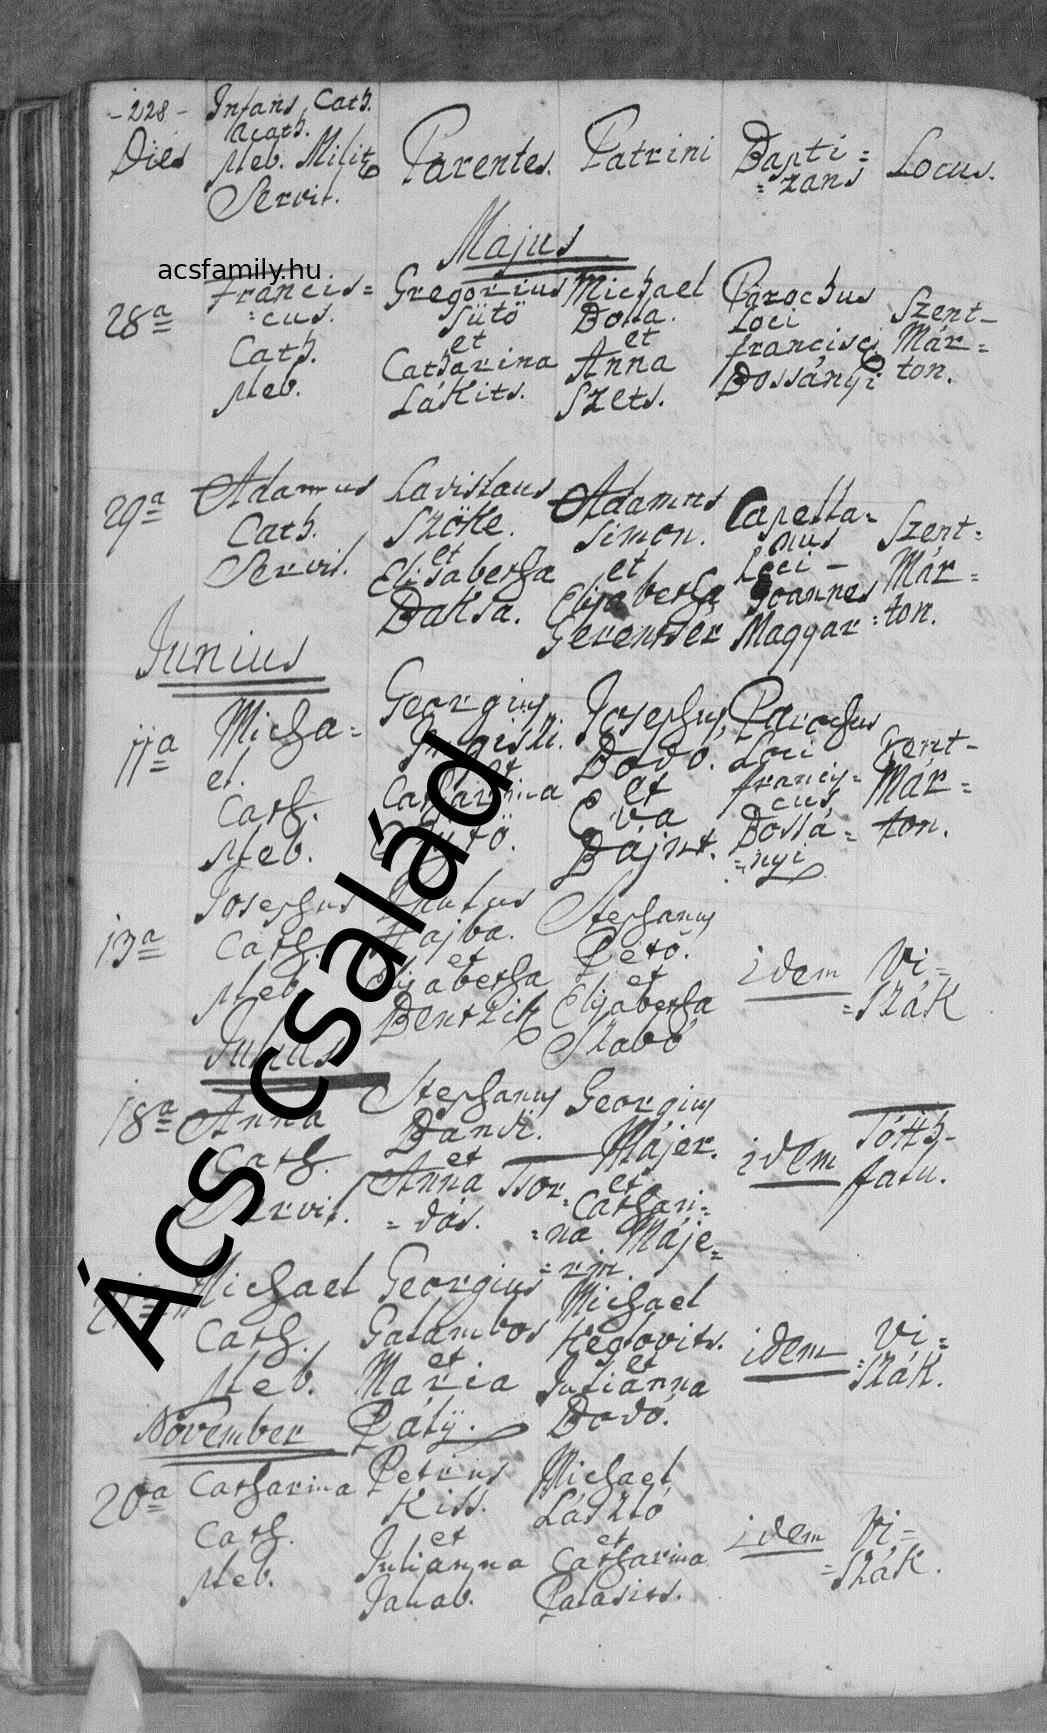 - 228 - Infans Cath.
Acath.
Dies Pleb. Milit Parentes. Patrini Bapti= Locus.
Servil. =zans
Majus
acsfamily.hu
28a Francis= Gregorius Michael Parochus Szent-
=cus. Sütö Dolla. Loci Már=
Cath. et et Francisci ton.
Pleb. Catharina Anna Dossányi
Lákits. Szets.
29a Adamus Lavislaus Adamus Capella= Szent=
Cath. Szöke. Simon. nus Már=
Servil. et et Loci - ton.
Elisabetha Elisabetha Joannes
Daksa. Gerentsér Magyar
Junius
11a Micha= Georgius Josephus Parochus Szent-
el. Dodo. Loci Már=
Cath. et et Francis= ton.
Pleb. Catharina Eva cus
Bájnt. Dossá=
=nyi
13a Josephus Hajba. Stephanus idem Vi=
Cath. et Petö. =szák
Pleb. Elisabetha et
Bentzik Elisabetha
Szabó
Julius
18a Anna Stephanus Georgius idem Tótth-
Cath. Dandi. Májer. falu.
Servil. et et
Anna Tsor= Cathari=
=dás. =na Máje=
=rin.
Michael Georgius Michael idem Vi=
Cath. Galambos Hegdovits. =szák.
Pleb. et et
Maria Julianna
Pálÿ. Dodó.
November
20a Catharina Petrus Michael idem Vi=
Cath. Kiss. László =szák.
Pleb. et et
Julianna Catharina
Jakab. Palasits.
Ács család